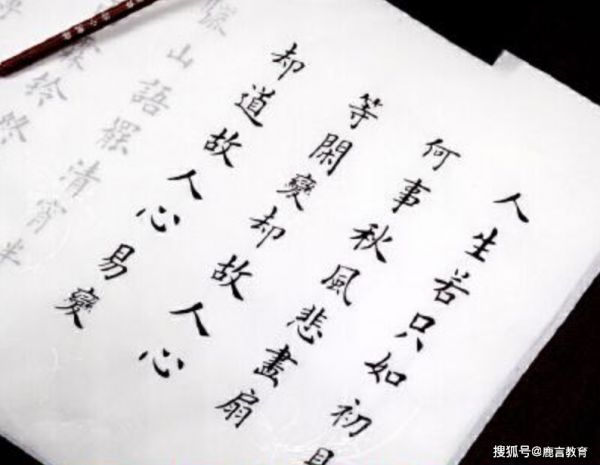 人生若只如初見
何事秋風悲畫扇
等閑變却故人心
却道故人心易變
驪山語罷清宵半
霖鈴終
搜狐号@鹿言教育